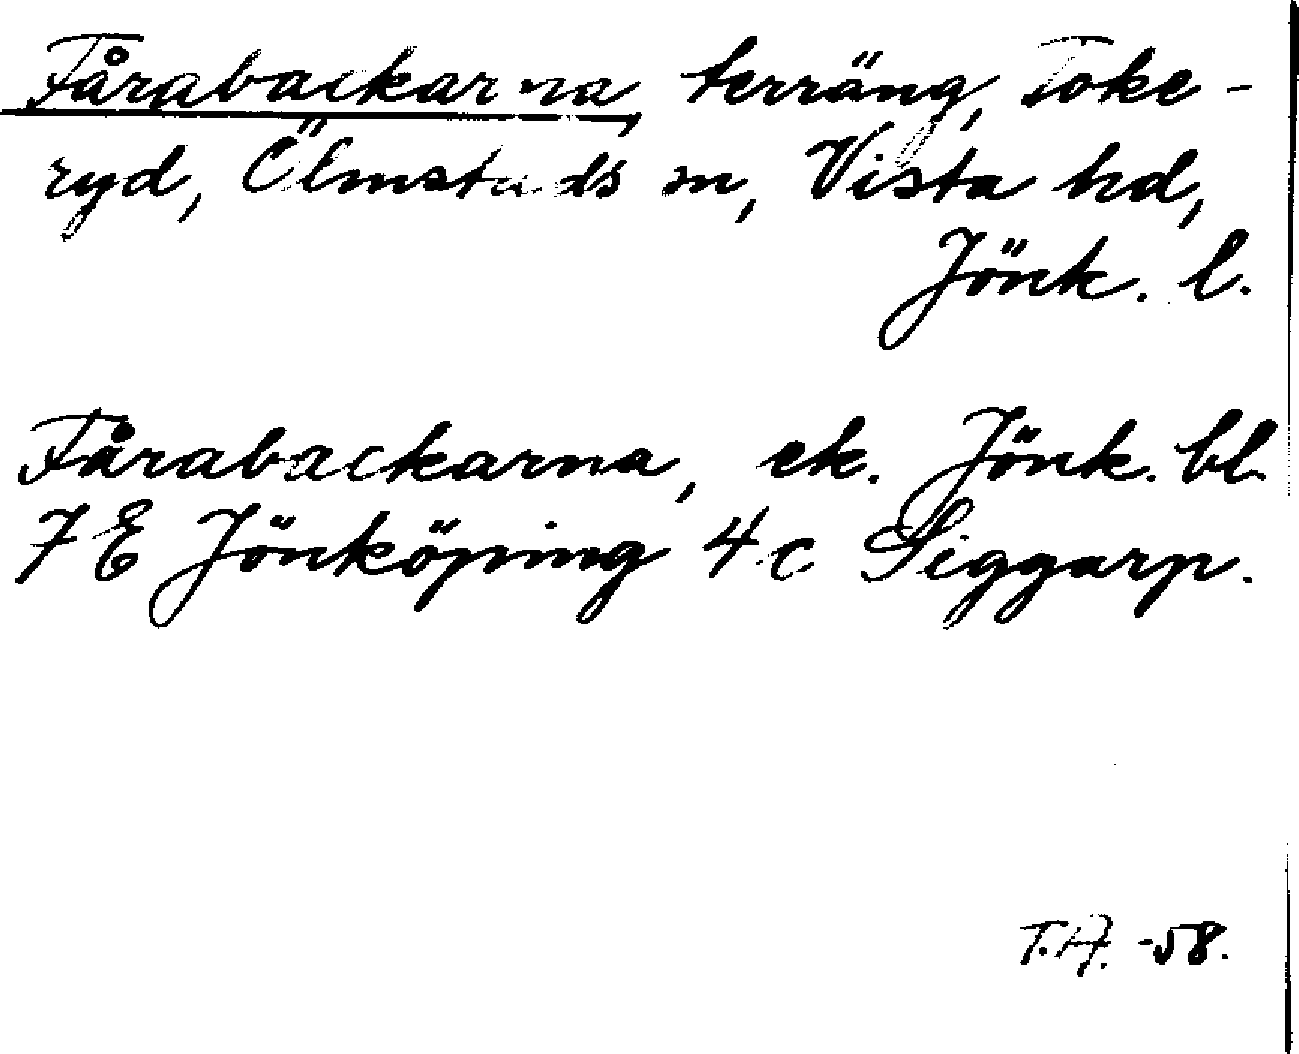 Fårabackarna, terräng, Toke-
ryd, Ölmstads sn, Vista hd,
Jönk. l.
Fårabackarna, ek. Jönk. bl.
7 E Jönköping 4 c Siggarp.
T.A. -58.